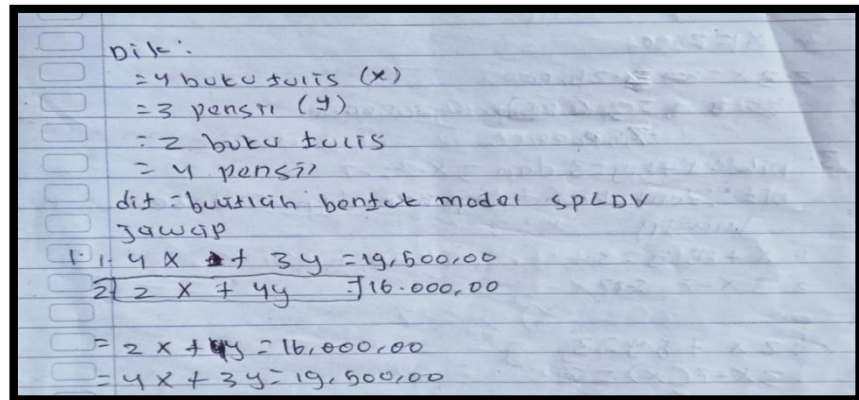 Dik :
= 4 buku tulis (x)
= 3 pensil (y)
= 2 buku tulis
= 4 pensil
dit = buatlah bentuk model SPLDV
Jawap
1. 1. 4 x + 3 y = 19,500,00
2 2 x + 4y = 16.000,00
= 2 x + 4y = 16,000,00
= 4 x + 3 y = 19,500,00